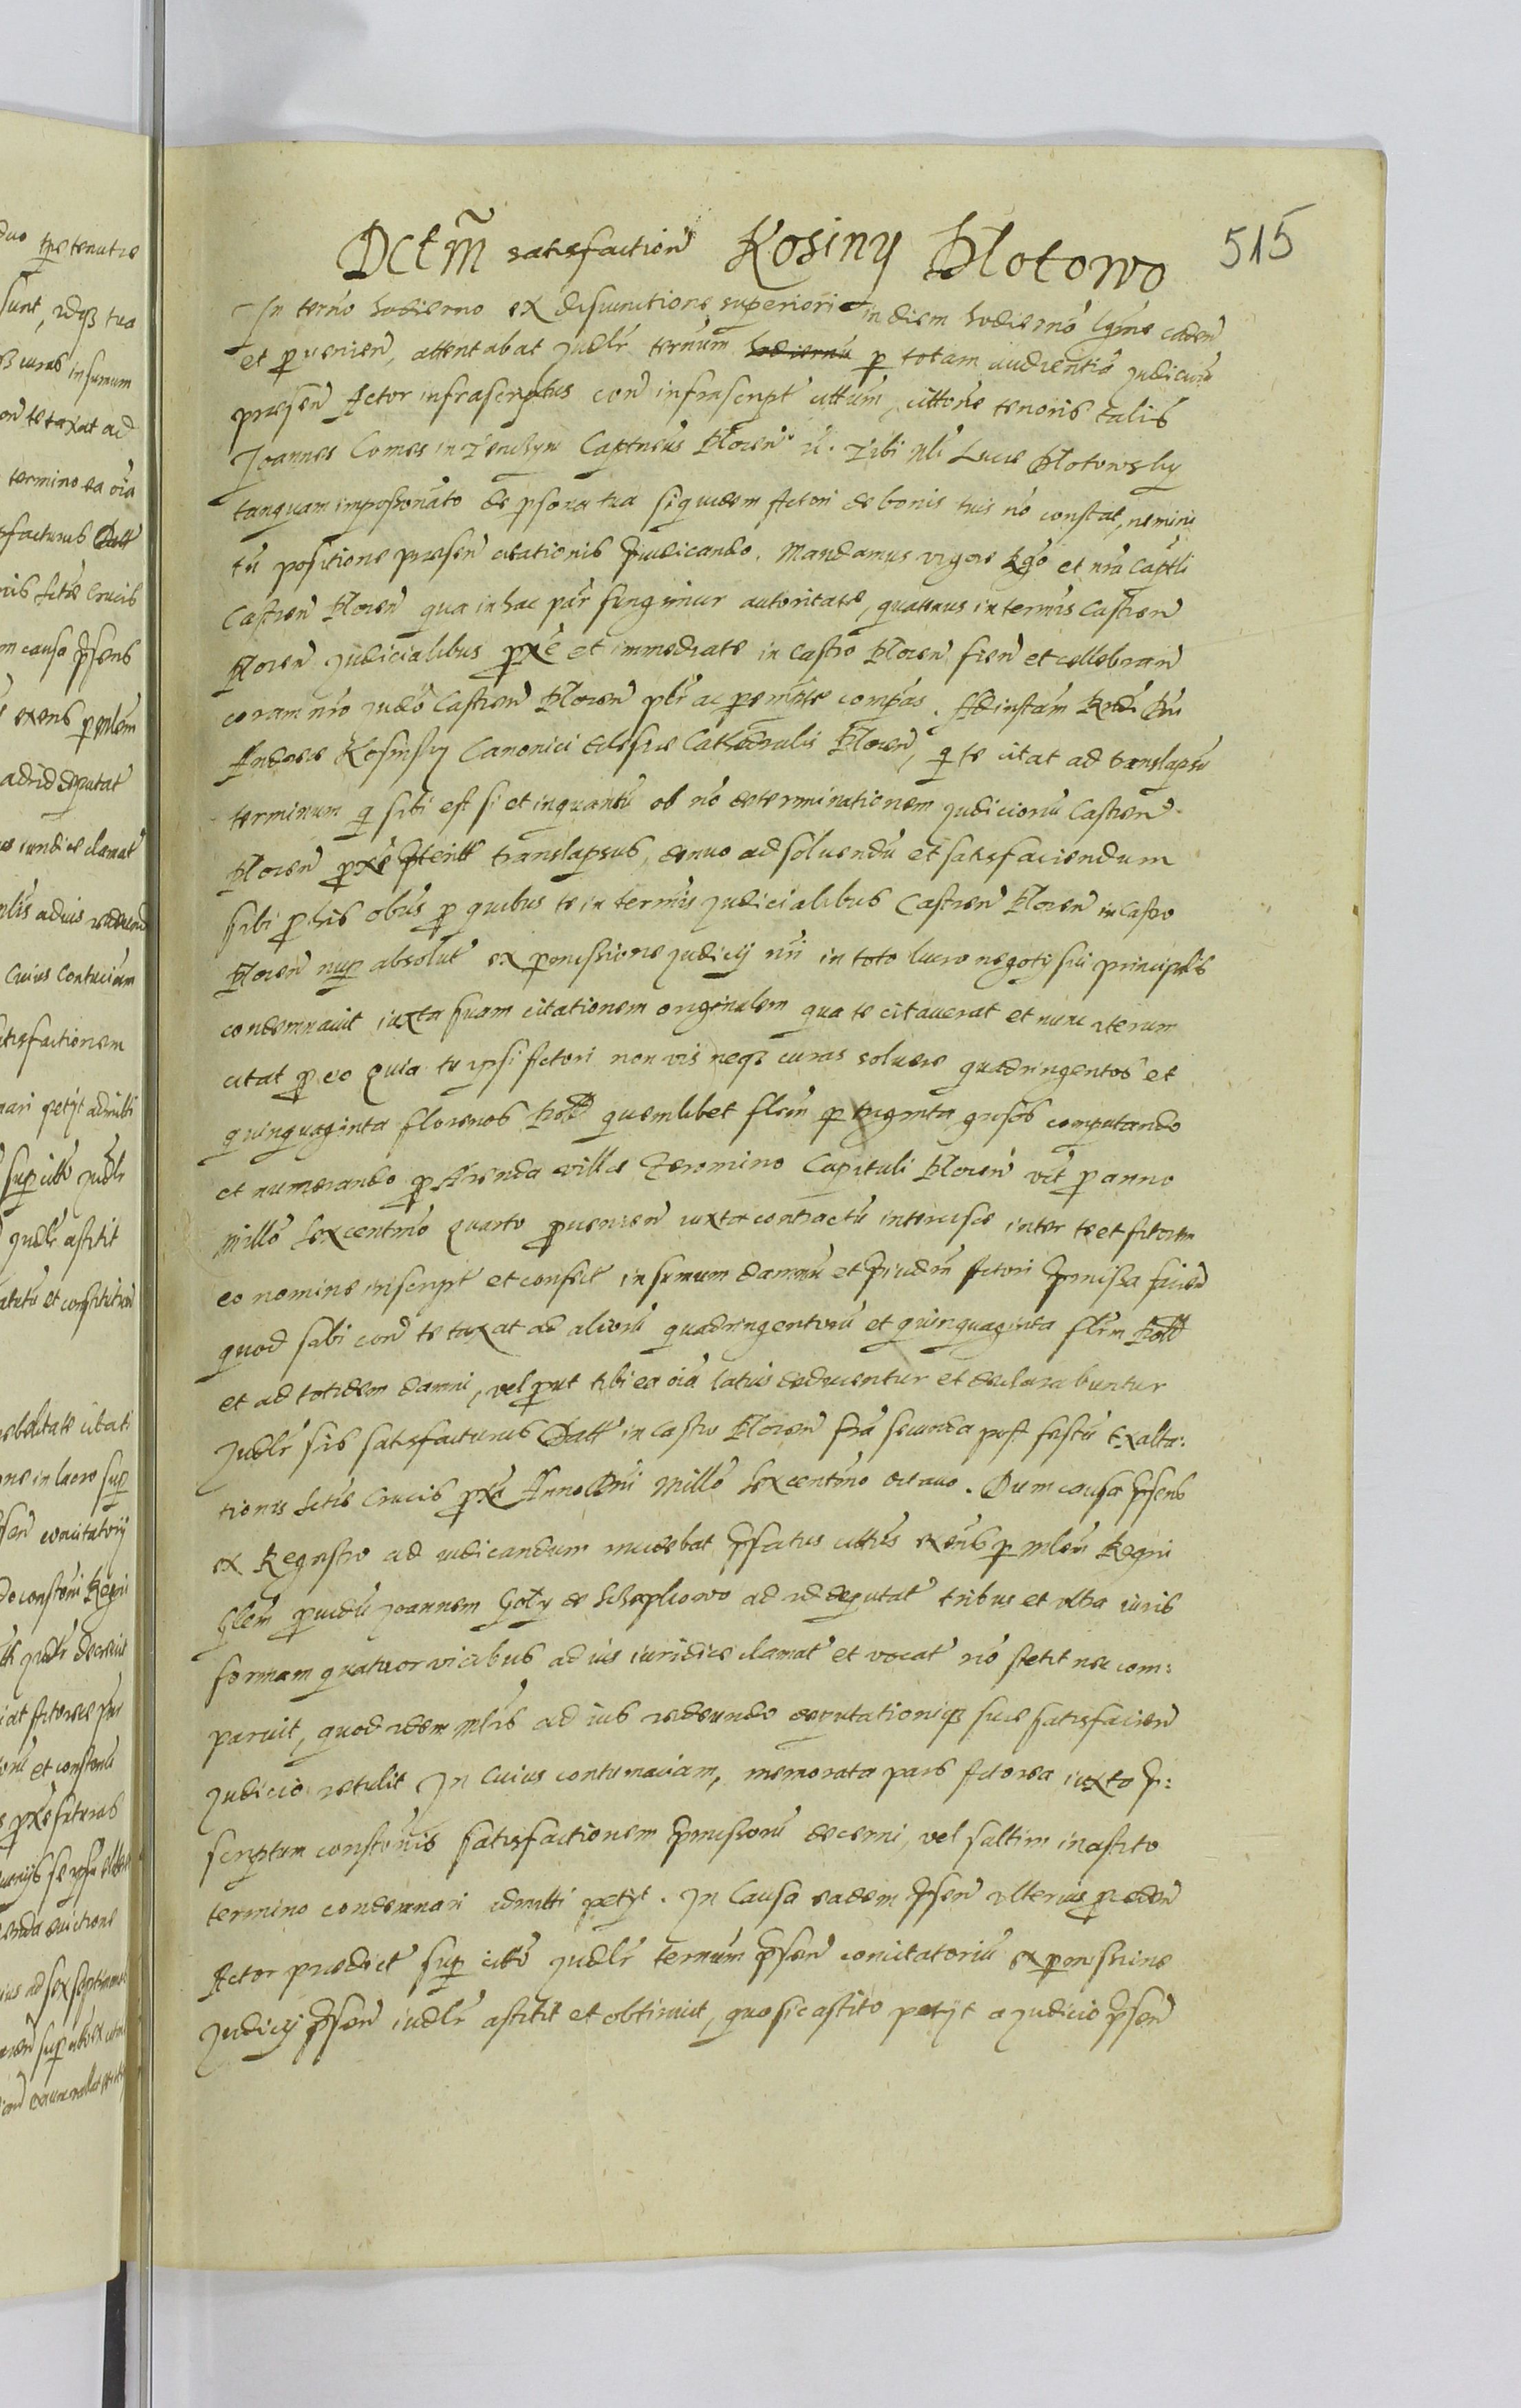 515
Dctm̃ satisfaction̄ Kosiny Płotowo
In term̄o hodierno ex disiunctione superiori in diem hodiernū lgm̄e caden̄
et prouenien̄, attentabat Judlr̄ term̄um p totam audientiā Judiciorū
praesen̄ Actor infrascriptus con̄ infrascript cittum, cittōne tenoris talis
Joannes Comes in Tenchyn Captneus Plocen̄ &. Tibi nli Lucae Plotowsky
tanquam impossionato de psona tua siquidem Actori de bonis tuis nō constat, nemini
tñ positione praesen̄ citationis priudicando. Mandamus vigore Rgo et nrā Captli
Castren̄ Plocen̄ qua in hac par̄ fungimur autoritate, quatenus in term̄is Castren̄
Plocen̄ Judicialibus pxe et immediate in Castro Plocen̄ fien̄ et cellebran̄
coram nro Judō Castren̄ Plocen̄ plr ac peremptē compās. Ad instam̄ Rndi Dn̄i
Andreae Kosinsky Canonici Eclesiae Cathedralis Plocen̄, q te citat ad translapsū
terminum q sibi est si et inquantū ob nō determinationem Judiciorū Castren̄
Plocen̄ pxe pterit translapsus, denuo ad soluendū et satisfaciendum
sibi p his obus p quibus te in term̄is Judicialibus Castren̄ Plocen̄ in Castro
Plocen̄ nup absolut ex pmissione Judicij nri in toto lucro negotij sui principalis
condemnauit iuxta suam citationem originalem qua te citauerat et nunc iterum
citat p eo Quia tu ipsi Actori non vis neq3 curas soluere quadringentos et
quinquaginta florenos Poll quemlibet flrm̄ p triginta grossos computando
et numerando p Arenda villae Zeromino Capituli Plocen̄ vit p anno
millō sexcentmō Quarto prouenien̄ iuxta contractū intercisae inter te et Actorem
eo nomine inscript et confect in summum damnū et priudm̄ Actori pmissa facien̄
quod sibi con̄ te taxat ad aliorū quadringentorū et quinquaginta flrm̄ Poll
et ad totidem damni, vel put tibi ea oīa latius deducentur et declarabuntur
Judlr̄ sis satisfacturus Datt in Castro Plocen̄ fra secunda post festū Exalta:
tionis Sctae Crucis pxa Anno Dn̄i Millō Sexcentmō octauo. Dum causa psens
ex Regestro ad iudicandum incidebat pfatus cittus exens p mlem̄ Regni
Glem̄ prouidū Joannem Goły de Schaplcowo ad id deputat tribus et vltra iuris
formam quatuor vicibus ad ius iuridice clamat et vocat nō stetit nec com:
paruit, quod idem mlris ad ius redeundo deputationiq3 suae satisfacien̄
Judicio retulit In Cuius contumaciam, memorata pars Actorea iuxta pr:
scriptum constōnis satisfactionem pmissorū decerni, vel saltim in astito
termino condemnari admitti petijt. In Causa eadem psen̄ vlterius pceden̄
Actor praedict sup cittū Judlr̄ term̄um psen̄ concitatoriū ex pmissione
Judicij psen̄ iudlr̄ astitit et obtinuit, quo sic astito petijt a Judicio psen̄